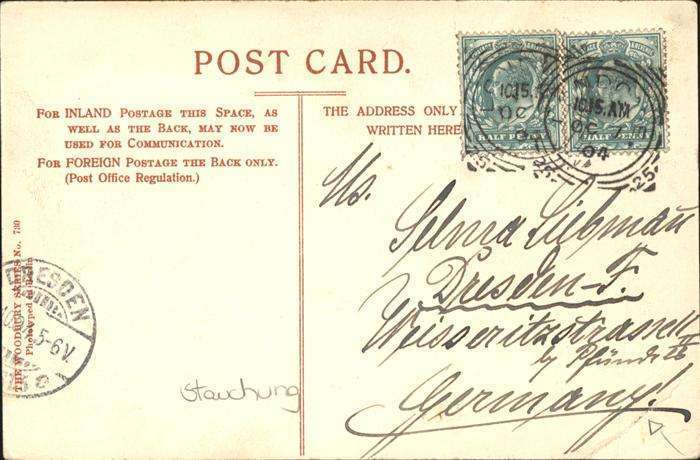 POST CARD.
FOR INLAND POSTAGE THIS SPACE, AS
WELL AS THE BACK, MAY NOW BE
USED FOR COMMUNICATION.
FOR FOREIGN POSTAGE THE BACK ONLY.
(Post Office Regulation.)
THE ADDRESS ONLY
WRITTEN HERE
HALF PENNY
HALF PENNY
10.15.AM
OC
04
25
Ms.
Selma Siebman
Dresden-F.
Weisseritzstrasse
by Pfündt 26
Germany!
THE WOODBURY SERIES No. 730
Phototyped in Berlin
DRESDEN
5-6V.
Stauchung